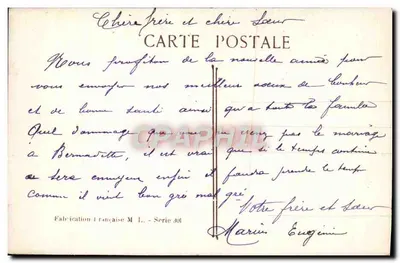 Chère frère et chère Sœur
CARTE POSTALE
Nous profiton de la nouvelle année pour
vous envoyer nos meilleur vœux de bonheur
et de bonne santé ainsi qu'a toute la famille
Quel dommage que vous pas le mariage
à Bernadette, il est vrai que si le temps continue
se sera ennuyeux enfin il faudra prendre le temps
comme il vient bon gré mal gré
Votre frère et Sœur
Marius Eugénie
Fabrication Française M L. - Serie 301
CPAPHIL